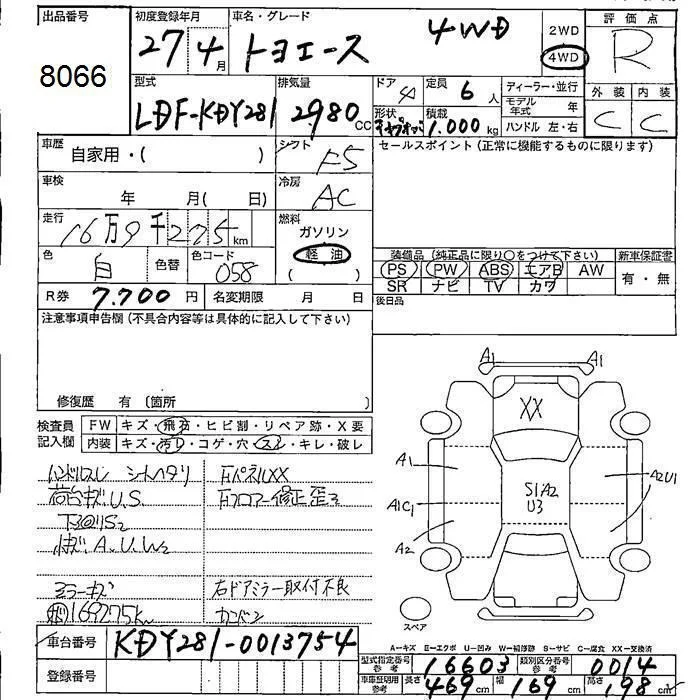 出品番号 初度登録年月 車名・グレード 評価点
8066 27年4月 トヨエース 4WD 2WD 4WD R
型式 排気量 ドア 定員 ディーラー・並行 外装 内装
LDF-KDY281 2980cc 4 6人 モデル年式 年 C C
形状 積載 1.000kg ハンドル 左・右
車歴 自家用・( ) シフト F5 セールスポイント(正常に機能するものに限ります)
車検 年 月( 日) 冷房 AC
走行 16万9千275km 燃料 ガソリン 軽油 ( )
色 白 色替 色コード 058
装備品(純正品に限り○をつけて下さい) 新車保証書
PS PW ABS エアB AW 有・無
SR ナビ TV カワ
R券 7.700円 名変期限 月 日 後日品
注意事項申告欄(不具合内容等は具体的に記入して下さい)
修復歴 有(箇所 )
検査員記入欄 FW キズ・飛石・ヒビ割・リペア跡・X要
内装 キズ・汚レ・コゲ・穴・スレ・キレ・破レ
ハンドルスレ シートヘタリ
荷台キズU.S.
キズA.U.W2
ミラーキズ
169275km
右ドアミラー取付不良
A1 A1
XX
A1
A1C1
A2
S1A2
U3
A2U1
スペア
A=キズ E=エクボ U=凹み W=補修跡 S=サビ C=腐食 XX=交換済
車台番号 KDY281-0013754
登録番号
型式指定番号参考 16603 類別区分番号参考 0014
車庫証明用参考 長さ 469cm 幅 169cm 高さ 198cm